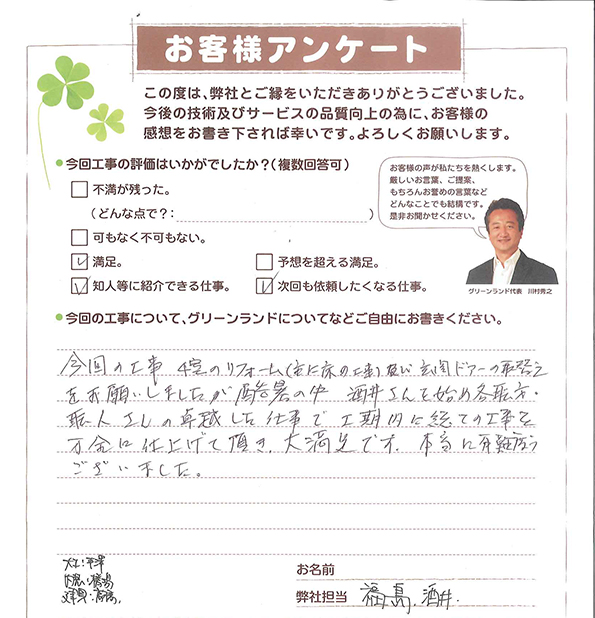 お客様アンケート
この度は、弊社とご縁をいただきありがとうございました。
今後の技術及びサービスの品質向上の為に、お客様の
感想をお書き下されば幸いです。よろしくお願いします。
●今回工事の評価はいかがでしたか?(複数回答可)
不満が残った。
(どんな点で?: )
可もなく不可もない。
満足。
予想を超える満足。
知人等に紹介できる仕事。
次回も依頼したくなる仕事。
お客様の声が私たちを熱くします。
厳しいお言葉、ご提案、
もちろんお誉めの言葉など
どんなことでも結構です。
是非お聞かせください。
グリーンランド代表 川村秀之
●今回の工事について、グリーンランドについてなどご自由にお書きください。
今回の工事 4室のリフォーム(主に床の工事)及び玄関ドアーの取替え
をお願いしましたが酷暑の中 酒井さんを始め各職方・
職人さんの卓越した仕事で工期内に総ての工事を
万全に仕上げて頂き、大満足です。本当に有難う
ございました。
大工:平澤
お名前
弊社担当 福島、酒井.